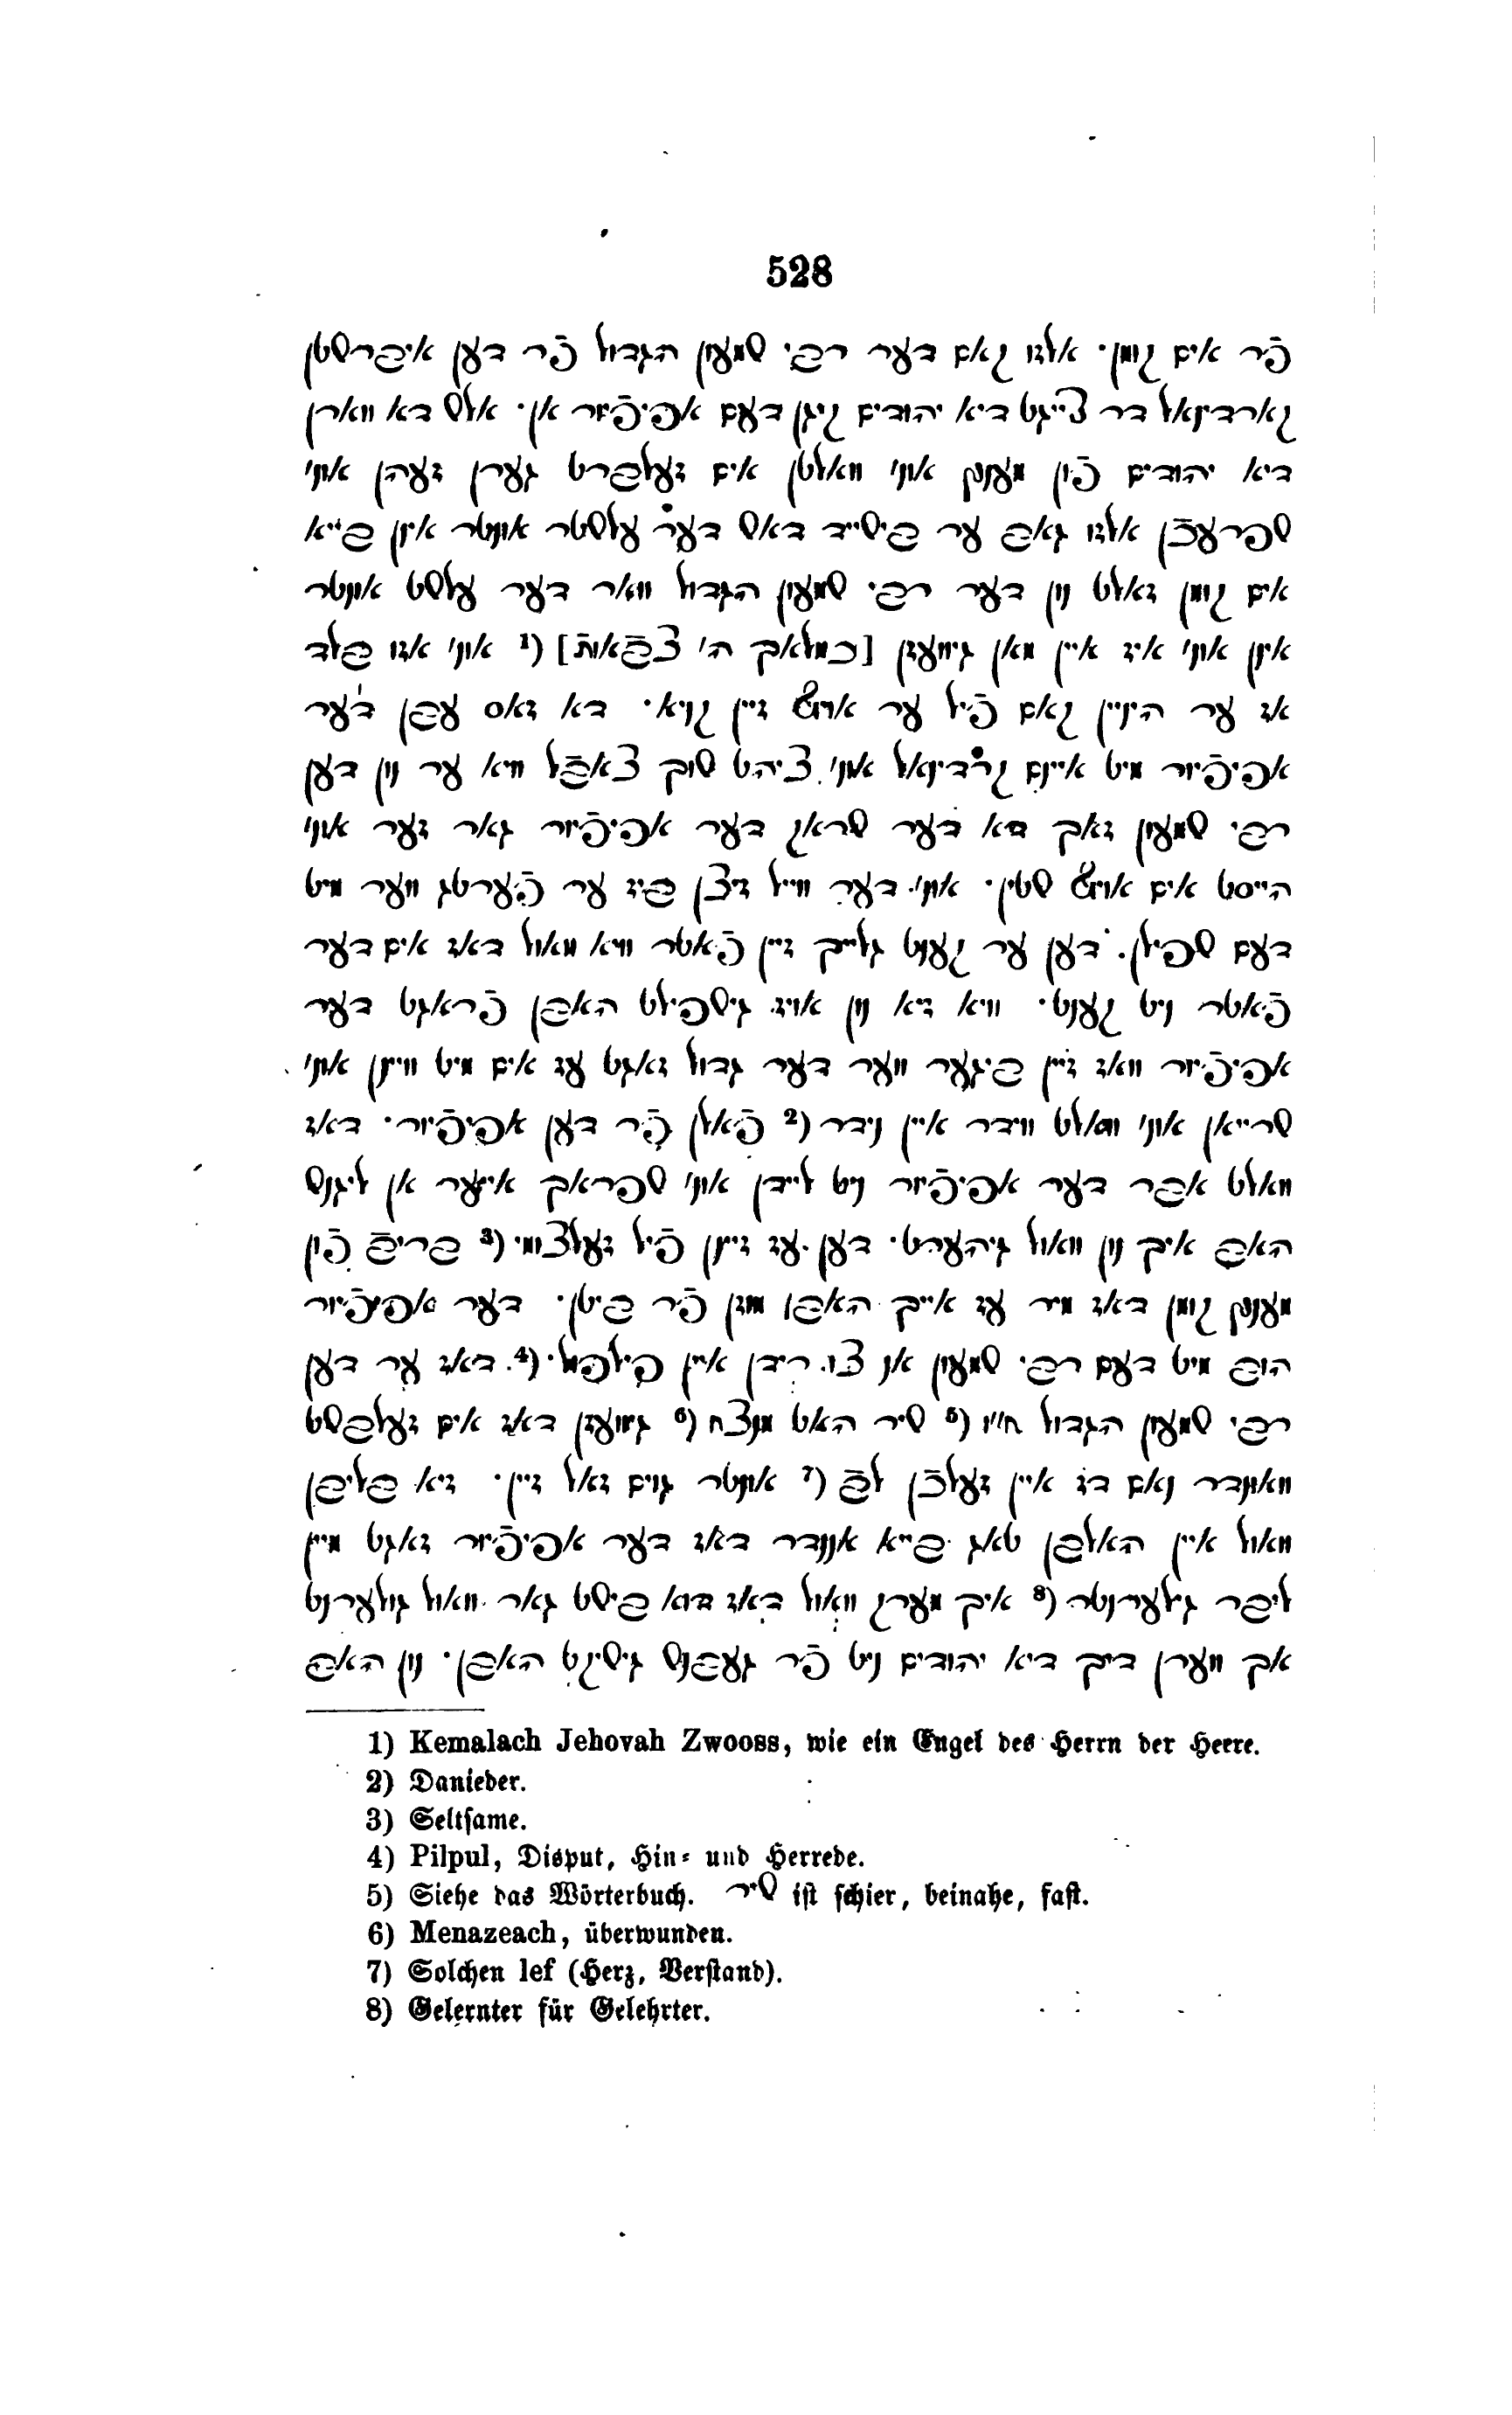 528
פֿר אים קומן· אלזו קאם דער רבי שמעון הגדול פֿר דען איברשטן
קארדינאל דר צייגט דיא יהודים קיגן דעם אפיפֿיור אן· אלש דא ווארן
דיא יהודים פֿון מענץ אוני וואלטן אים זעלברט גערן זעהן אוני
שפרעכֿן אלזו גאב ער בישייד דאש דער עלשטר אונטר אין בייא
אים קומן זאלט נון דער רבי שמעון הגדול וואר דער עלשט אונטר
אין אוני איז איין מאן גיוועזן [כמלאך ה׳ צבֿאות] (¹ אוני אזו בלד
אז ער היניין קאם פֿיל ער אויף זיין קניא· דא זאס עבן דער
אפיפֿיור מיט איינם קרדינאל אוני ציהט שוך צאבֿל וויא ער נון דען
רבי שמעון זאך דא דער שראק דער אפיפֿיור גאר זער אוני
הייסט אים אויף שטין· אוני דער ווייל זיצן ביז ער פֿערטג ווער מיט
דעם שפילן· דען ער קענט גלייך זיין פֿאטר וויא וואול דאז אים דער
פֿאטר ניט קענט· וויא זיא נון אויז גישפילט האבן פֿראגט דער
אפיפֿיור וואז זיין ביגער ווער דער גדול זאגט עז אים מיט וויינן אוני
שרייאן אוני וואלט ווידר איין נידר (² פֿאלן פֿר דען אפיפֿיור· דאז
וואלט אבר דער אפיפֿיור ניט ליידן אוני שפראך אייער אן ליגנש
האב איך נון וואול גיהערט· דען עז זיינן פֿיל זעלצומי (³ בריבֿ פֿון
מענץ קומן דאז מיר עז אייך האבן מוזן פֿר ביטן· דער אפיפֿיור
הוב מיט דעם רבי שמעון אן צו רידן איין פילפול· (⁴ דאז ער דען
רבי שמעון הגדול ח״ו (⁵ שיר האט מנצח (⁶ גיוועזן דאז אים זעלבשט
וואונדר נאם דז איין זעלכֿן לבֿ (⁷ אונטר גוים זאל זיין· זיא בליבן
וואול איין האלבן טאג בייא אנדר דאז דער אפיפֿיור זאגט מיין
ליבר גילערנטר (⁸ איך מערק וואול דאז דוא בישט גאר וואול גילערנט
אך ווערן דיך דיא יהודים ניט פֿר געבנש גישיקט האבן· נון האב
1) Kemalach Jehovah Zwooss, wie ein Engel des Herrn der Heere.
2) Danieder.
3) Seltsame.
4) Pilpul, Disput, Hin- und Herrede.
5) Siehe das Wörterbuch. שיר ist schier, beinahe, fast.
6) Menazeach, überwunden.
7) Solchen lef (Herz, Verstand).
8) Gelernter für Gelehrter.